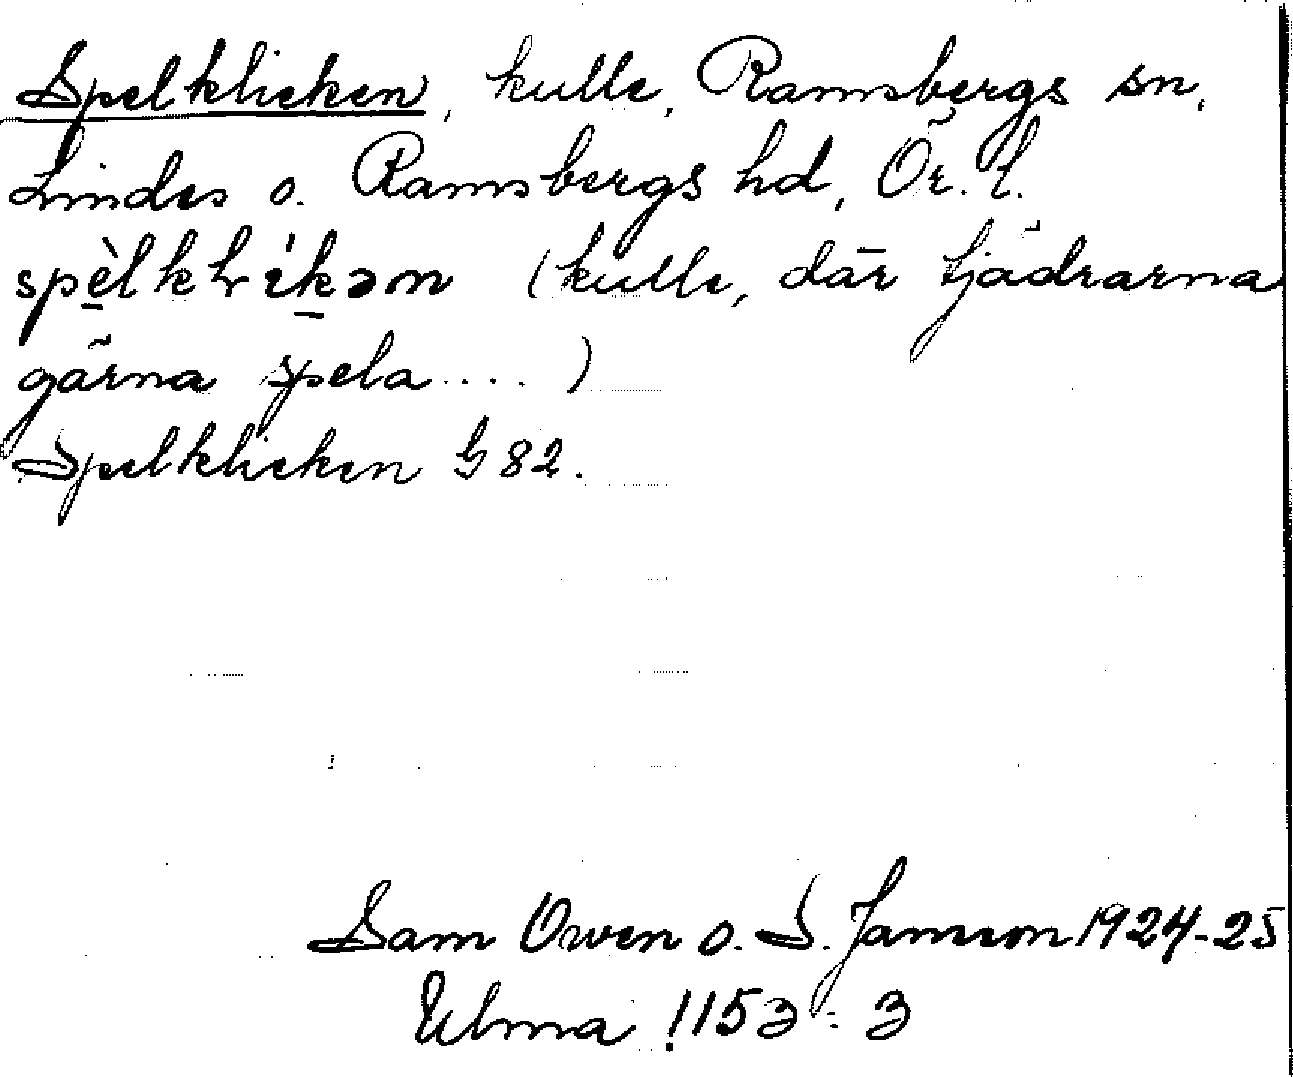 Spelklicken, kulle, Ramsbergs sn,
Lindes o. Ramsbergs hd, Ör. l.
(kulle, där tjädrarna
gärna spela .... )
Spelklicken G 82.
Sam Owen o. S. Janson 1924-25
Ulma 1153: 3